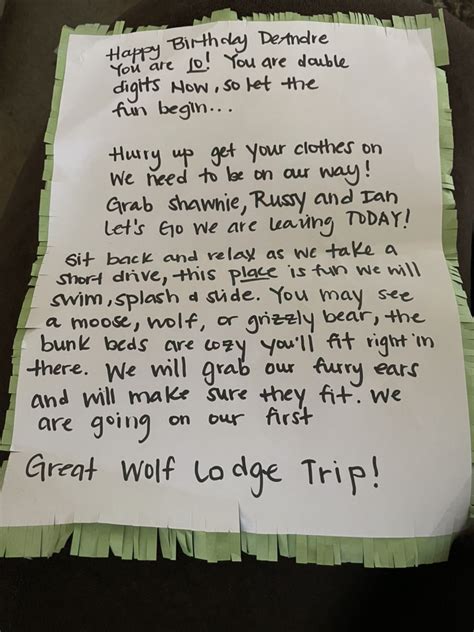 Happy Birthday DeAndre
You are 10! You are double
digits Now, so let the
fun begin...
Hurry up get your clothes on
We need to be on our way!
Grab Shawnie, Russy and Ian
Let's Go we are leaving TODAY!
Sit back and relax as we take a
short drive, this place is fun we will
swim, splash & slide. You may see
a moose, wolf, or grizzly bear, the
bunk beds are cozy you'll fit right in
there. We will grab our furry ears
and will make sure they fit. We
are going on our first
Great Wolf Lodge Trip!